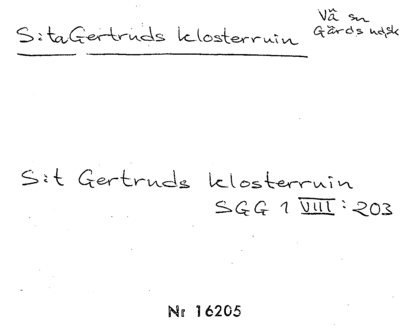 S:ta Gertruds klosterruin
Vä sn
Gärds hd sk
S:t Gertruds klosterruin
SGG 1 VIII : 203
Nr 16205